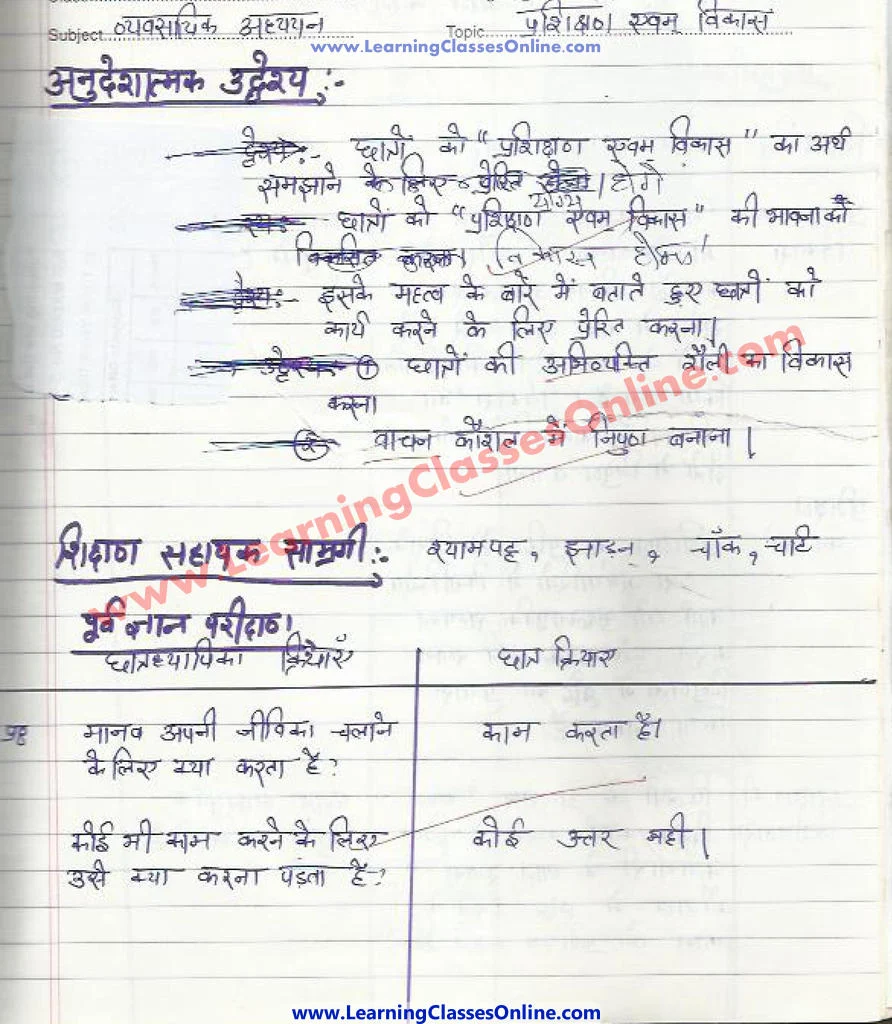 Subject व्यवसायिक अध्ययन Topic प्रशिक्षण एवम् विकास
www.LearningClassesOnline.com
अनुदेशात्मक उद्देश्य :-
छात्रों को "प्रशिक्षण एवम् विकास" का अर्थ
समझाने के लिए प्रेरित होंगे
योग्य
छात्रों को "प्रशिक्षण एवम विकास" की भावना को
विकसित करना।
इसके महत्व के बारे में बताते हुए छात्रों को
कार्य करने के लिए प्रेरित करना।
① छात्रों की अभिव्यक्ति शैली का विकास
करना
② वाचन कौशल में निपुण बनाना।
www.LearningClassesOnline.com
शिक्षण सहायक सामग्री :- श्यामपट्ट, झाड़न, चॉक, चार्ट
पूर्व ज्ञान परीक्षण
छात्रध्यापिका क्रियाएँ छात्र क्रियाएं
मानव अपनी जीविका चलाने काम करता है।
के लिए क्या करता है?
कोई भी काम करने के लिए कोई उत्तर नही।
उसे क्या करना पड़ता है?
www.LearningClassesOnline.com